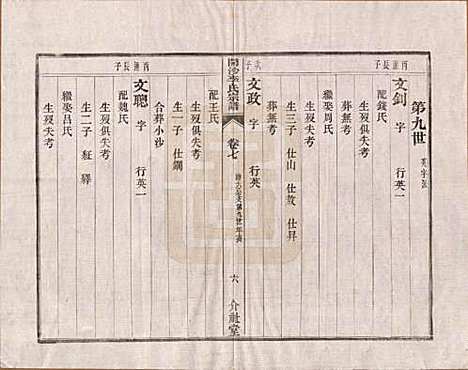 第九世 英字派
丙進長子
文釗 字 行英一
配錢氏
生歿俱失考
葬無考
繼娶周氏
生歿失考
生三子 仕山 仕敖 仕昇
葬無考
次子
文政 字 行英
開沙李氏宗譜
卷七
六
介祉堂
配王氏
生歿俱失考
生一子 仕鋼
合葬小沙
丙進長子
文聰 字 行英一
配魏氏
生歿俱失考
生二子 紅 驛
繼娶呂氏
生歿失考